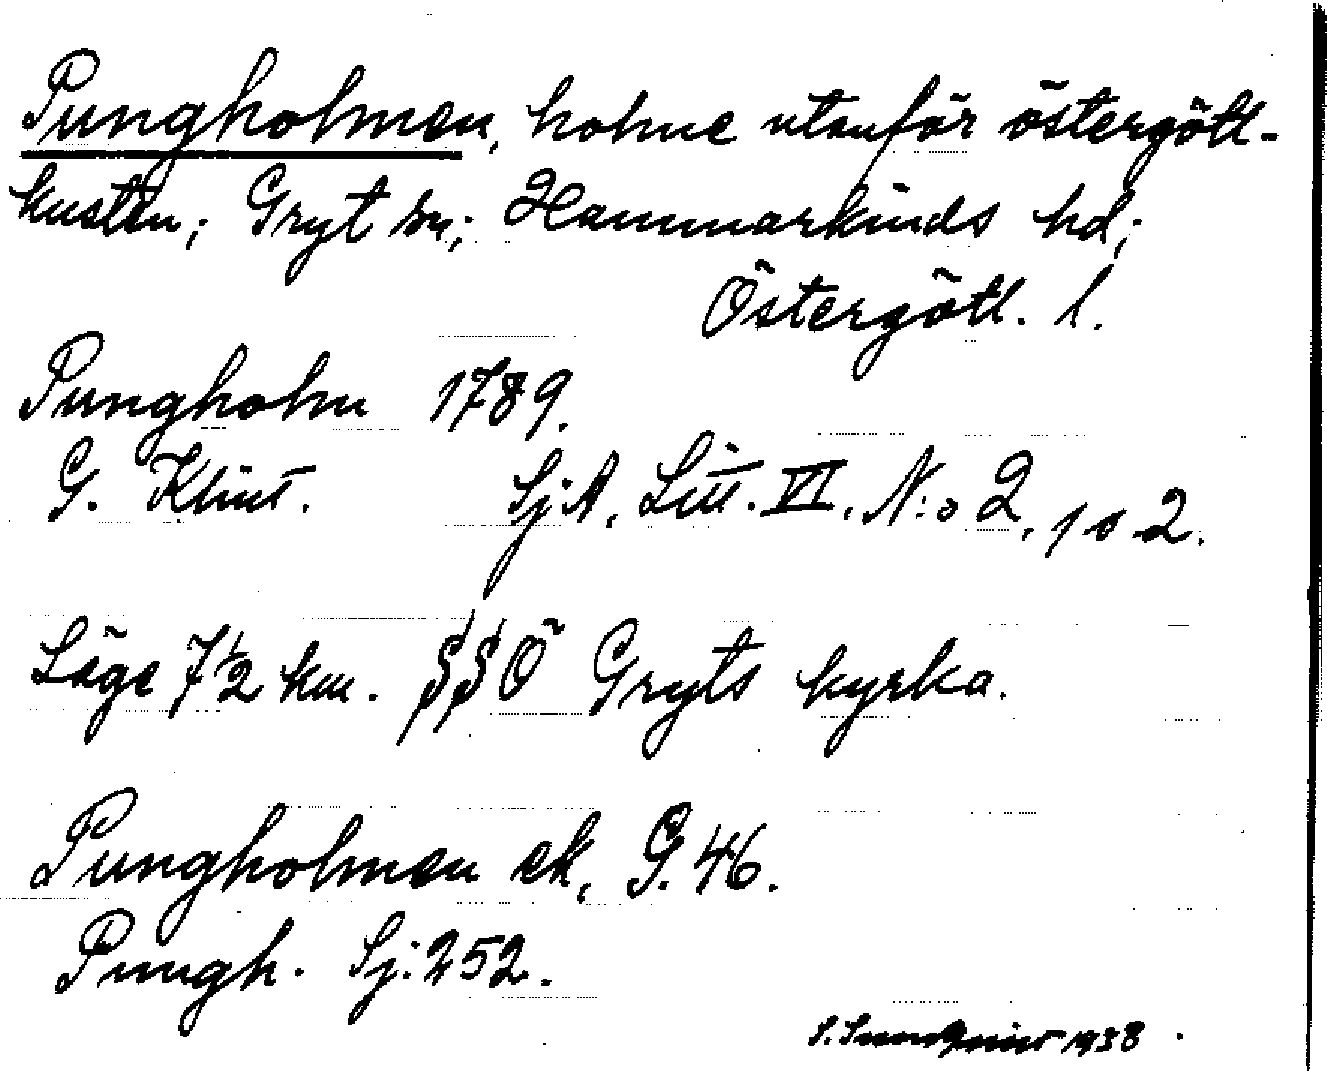 Pungholmen, holme utanför östergötl-
kusten; Gryt sn; Hammarkinds hd;
Östergötl. l.
Pungholm 1789.
G. Klint. Sj.A, Litt. VI, N:o 2, 1 o 2.
Läge 7 1/2 km. SSÖ Gryts kyrka.
Pungholmen ek, G. 46.
Pungh. Sj. 252.
S. Sundqvist 1938.